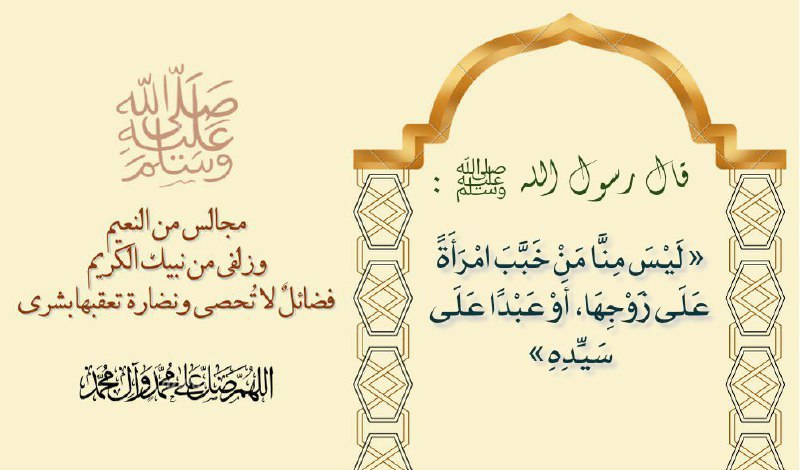 قال رسول الله ﷺ :
« لَيْسَ مِنَّا مَنْ خَبَّبَ امْرَأَةً
عَلَى زَوْجِهَا، أَوْ عَبْدًا عَلَى
سَيِّدِهِ »
صَلَّى اللّٰه
عَلَيْهِ
وَسَلَّمَ
مجالس من النعيم
وزلفى من نبيك الكريم
فضائلٌ لا تُحصى ونضارة تعقبها بشرى
اللهُمَّ صَلِّ عَلَى مُحَمَّدٍ وَآلِ مُحَمَّدٍ